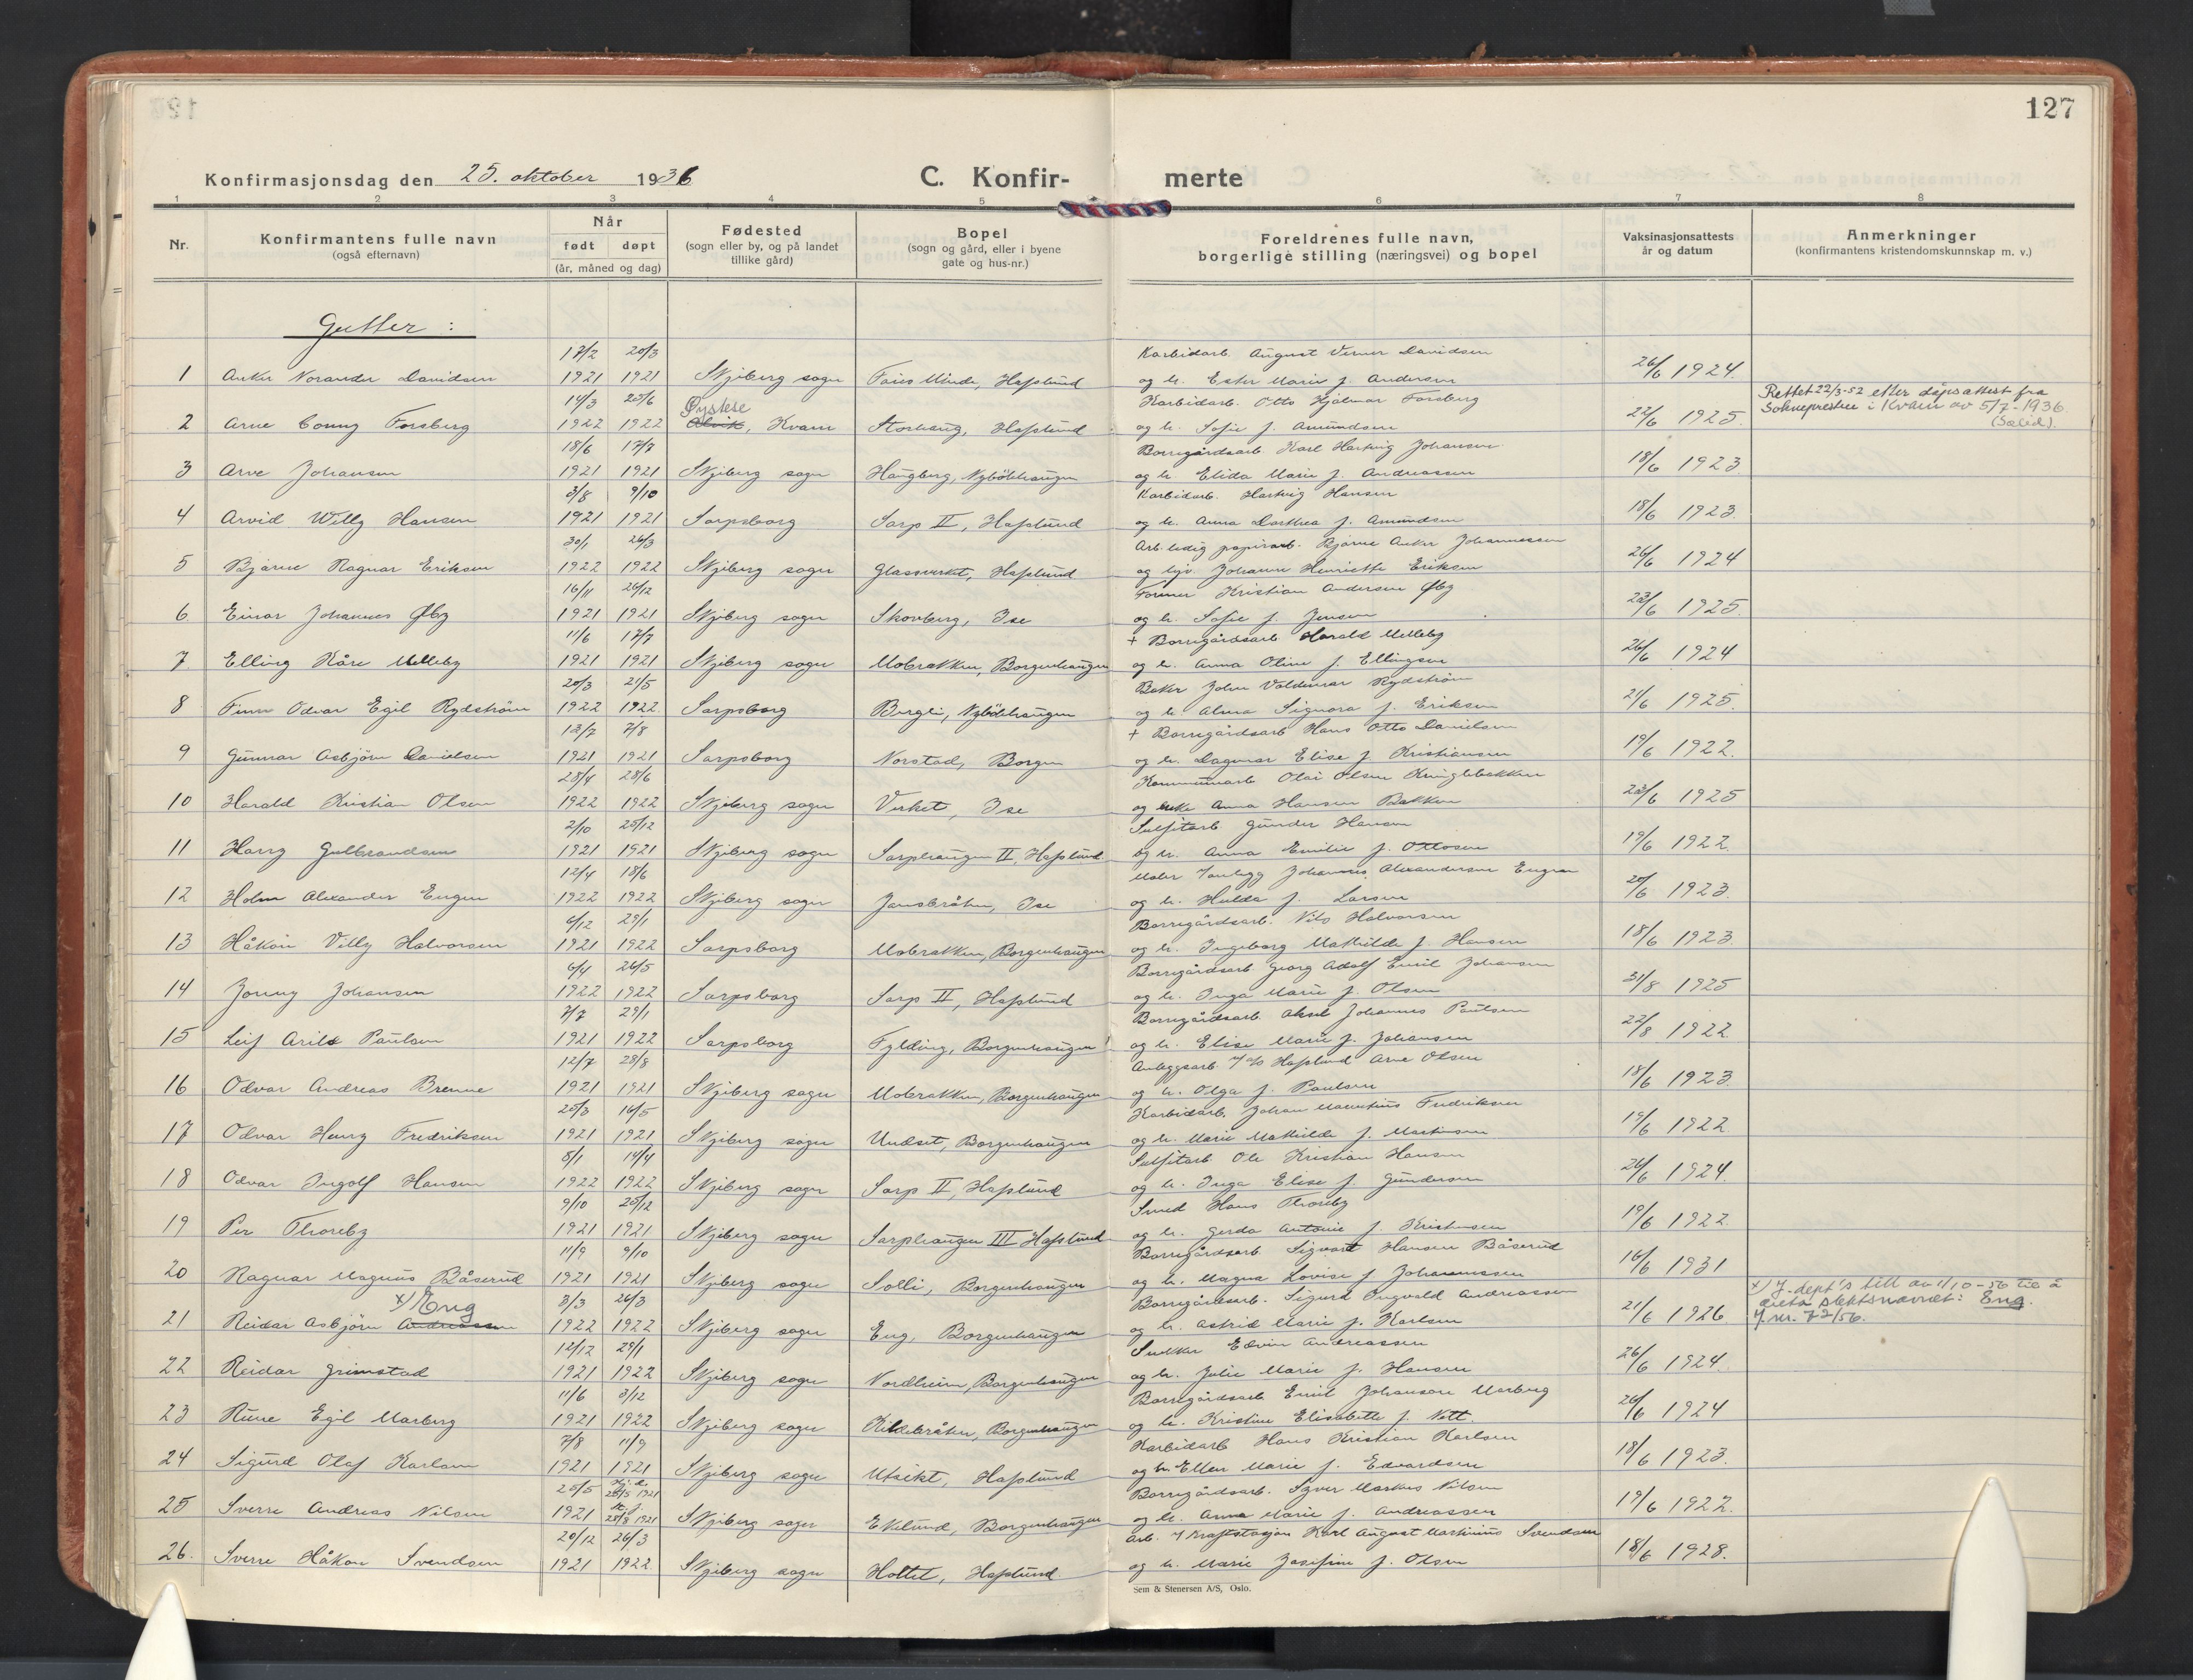 127
Konfirmasjonsdag den 25. oktober 1936 C. Konfir- merte
1 2 3 4 5 6 7 8
Nr. Konfirmantens fulle navn (også efternavn) Når født døpt (år, måned og dag) Fødested (sogn eller by, og på landet tillike gård) Bopel (sogn og gård, eller i byene gate og hus-nr.) Foreldrenes fulle navn, borgerlige stilling (næringsvei) og bopel Vaksinasjonsattests år og datum Anmerkninger (konfirmantens kristendomskunnskap m. v.)
Gutter :
17/2 20/3 Karbidarb. August Verner Davidsen
1 Anker Norander Davidsen 1921 1921 Skjeberg sogn Minde, Hafslund og h. Ester Marie f. Andersen 26/6 1924
14/3 23/6 Øystese Karbidarb. Otto Hjalmar Forsberg Rettet 22/3-52 efter dåpsattest fra
2 Arne Conny Forsberg 1922 1922 Alvik, Kvam Storhaug, Hafslund og h. Sofie f. Amundsen 22/6 1925 Sokneprestee i Kvam av 5/7-1936.
18/6 17/7 Borregårdsarb. Karl Hartvig Johansen
3 Arve Johansen 1921 1921 Skjeberg sogn Haugberg, Nybölehaugen og h. Elida Marie f. Andreassen 18/6 1923
3/8 9/10 Karbidarb. Hartvig Hansen
4 Arvid Willy Hansen 1921 1921 Sarpsborg Sarp II, Hafslund og h. Anna Dorthea f. Amundsen 18/6 1923
30/1 26/3 Arb.ledig papirarb. Bjarne Anker Johannessen
5 Bjarne Ragnar Eriksen 1922 1922 Skjeberg sogn Glassverket, Hafslund og Johanne Henriette Eriksen 26/6 1924
16/11 26/12 Former Kristian Andersen Øby
6 Einar Johannes Øby 1921 1921 Skjeberg sogn Skovberg, Ise og h. Sofie f. Jensen 23/6 1925
11/6 17/7 + Borregårdsarb Harald Melleby
7 Elling Kåre Melleby 1921 1921 Skjeberg sogn Mobrakken, Borgenhaugen og h. Anna Oline f. Ellingsen 26/6 1924
20/3 21/5 Baker John Valdemar Rydström
8 Finn Odvar Egil Rydström 1922 1922 Sarpsborg Bergli, Nybölehaugen og h. Alma Signora f. Eriksen 21/6 1925
13/7 7/8 + Borregårdsarb Hans Otto Danielsen
9 Gunnar Asbjörn Danielsen 1921 1921 Sarpsborg Norstad, Borgen og h. Dagmar Elise f Kristiansen 19/6 1922
28/4 28/6 Kommunearb Olai Olsen Kringlebakken
10 Harald Kristian Olsen 1922 1922 Skjeberg sogn Virket, Ise og enke Anna Hansen Bakken 23/6 1925
2/10 25/12 Sulfitarb. Gunder Hansen
11 Harry Gulbrandsen 1921 1921 Skjeberg sogn Sarphaugen II, Hafslund og h. Anna Emilie f. Ottosen 19/6 1922
12/4 18/6 Maler Johannes Alexandersen Eugen
12 Holm Alexander Eugen 1922 1922 Skjeberg sogn Jansbråten, Ise og h. Hulda f. Larsen 20/6 1923
6/12 29/1 Borregårdsarb. Nils Halvorsen
13 Håkon Villy Halvorsen 1921 1922 Sarpsborg Mobrakken, Borgenhaugen og h. Ingeborg Mathilde f. Hansen 18/6 1923
6/4 26/5 Borregårdsarb Georg Adolf Emil Johansen
14 Jonny Johansen 1922 1922 Sarpsborg Sarp II, Hafslund og h. Inga Marie f. Olsen 31/8 1925
7/7 29/1 Borregårdsarb. Aksel Johannes Paulsen
15 Leif Arild Paulsen 1921 1922 Sarpsborg Fylding, Borgenhaugen og h. Elise Marie f. Johansen 22/8 1922
12/7 28/8 Anleggsarb. Hafslund Arne Olsen
16 Odvar Andreas Brenne 1921 1921 Skjeberg sogn Mobrakken, Borgenhaugen og h. Olga f. Paulsen 18/6 1923
25/3 16/5 Karbidarb. Johan Martinius Fredriksen
17 Odvar Henry Fredriksen 1921 1921 Skjeberg sogn Undset, Borgenhaugen og h. Marie Mathilde f. Martinsen 19/6 1922
5/1 14/4 Sulfitarb Ole Kristian Hansen
18 Odvar Ingolf Hansen 1922 1922 Skjeberg sogn Sarp II, Hafslund og h. Inga Elise f. Gundersen 26/6 1924
9/10 25/12 Smed Hans Thoreby
19 Per Thoreby 1921 1921 Skjeberg sogn Sarphaugen III Hafslund og h. Gerda Antonie f. Kristensen 19/6 1922
11/9 9/10 Borregårdsarb Sigvart Hansen Båserud
20 Ragnar Magnus Båserud 1921 1921 Skjeberg sogn Solli, Borgenhaugen og h. Magna Lovise f. Johannessen 16/6 1931
x) Eng 3/3 26/3 Borregårdsarb. Sigurd Ingvald Andreassen x) J.-dept's till av 1/10-56 til å
21 Reidar Asbjörn Andreassen 1922 1922 Skjeberg sogn Eng, Borgenhaugen og h. Astrid Marie f. Karlsen 21/6 1926 slektsnavnet: Eng.
J. nr. 72/56.
12/12 29/1 Snekker Edvin Andreassen
22 Reidar Grimstad 1921 1922 Skjeberg sogn Nordheim, Borgenhaugen og h. Julie Marie f. Hansen 26/6 1924
11/6 3/12 Borregårdsarb Emil Johansen Marberg
23 Rune Egil Marberg 1921 1922 Skjeberg sogn Kildebråten, Borgenhaugen og h. Kristine Elisabeth f. Nott. 26/6 1924
7/8 11/9 Karbidarb Hans Kristian Karlsen
24 Sigurd Olaf Karlsen 1921 1921 Skjeberg sogn Utsikt, Hafslund og h. Ellen Marie f. Edvardsen 18/6 1923
25/5 25/5 1921 Borregårdsarb. Syver Markus Nilsen
25 Sverre Andreas Nilsen 1921 28/8 1921 Skjeberg sogn Ekelund, Borgenhaugen og h. Anna Marie f. Andreassen 19/6 1922
20/12 26/3 Arb. Kraftstasjon Karl August Martinius Svendsen
26. Sverre Håkon Svendsen 1921 1922 Skjeberg sogn Holtet, Hafslund og h. Marie Josefine f. Olsen 18/6 1928.
Sem & Stenersen A/S, Oslo.